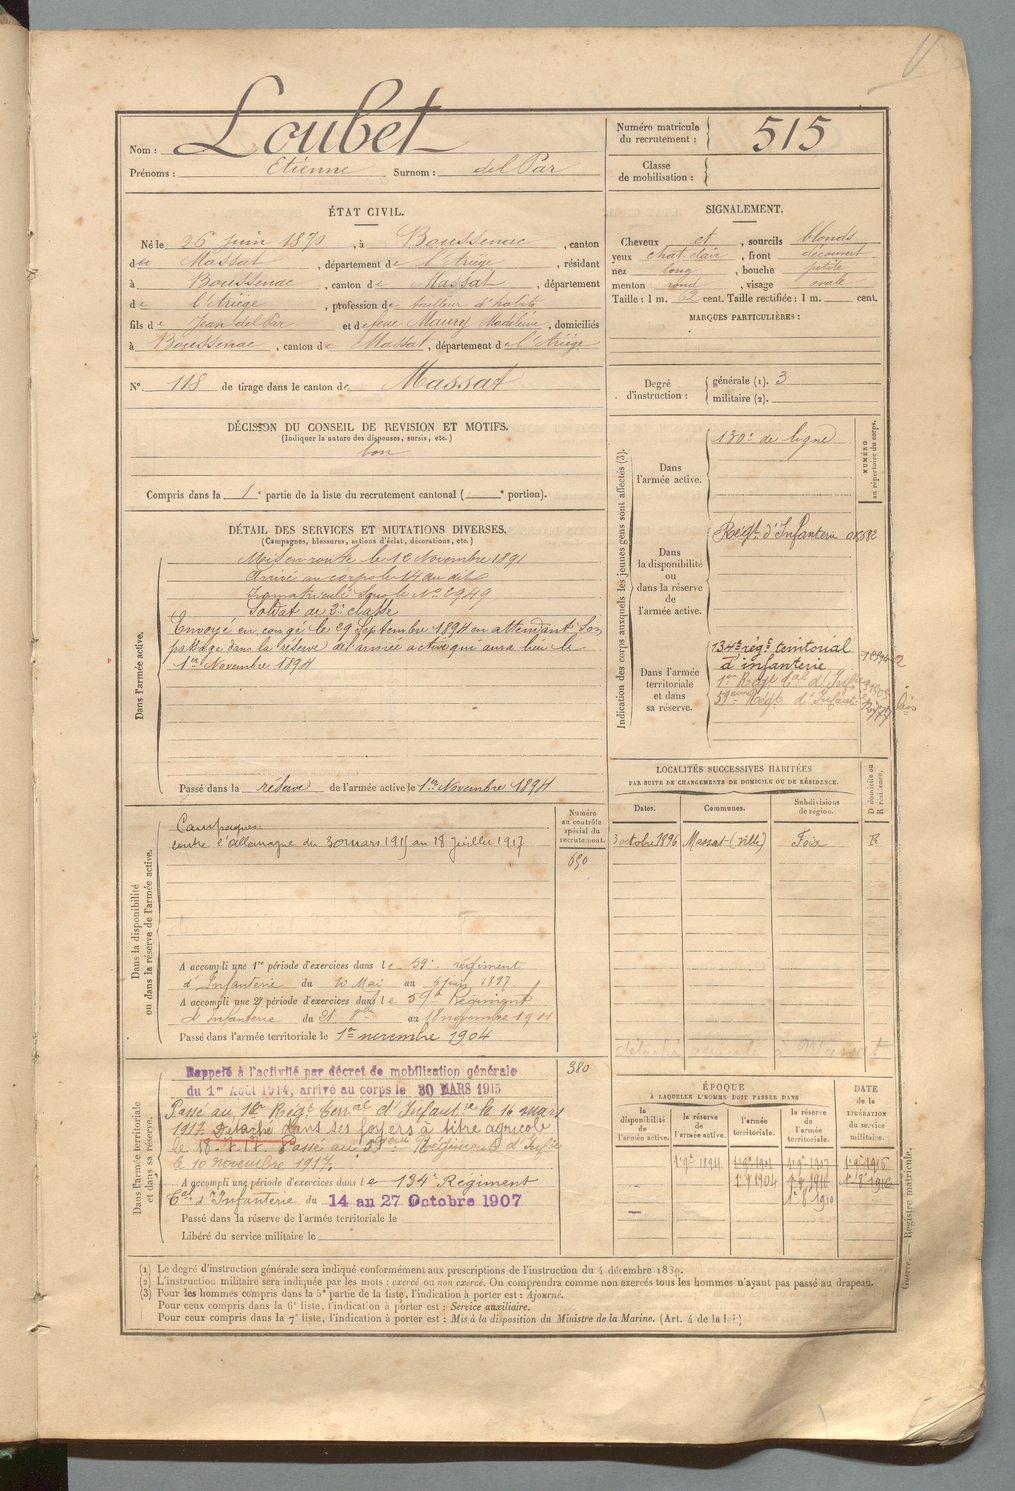 Nom : Loubet
Prénoms : Etienne Surnom : del Par
Numéro matricule du recrutement : 515
Classe de mobilisation :
ÉTAT CIVIL.
Né le 26 juin 1870, à Boussenac, canton
de Massat, département de l'Ariège, résidant
à Boussenac, canton de Massat, département
de l'Ariège, profession de tailleur d'habits
fils de Jean del Par et de feue Maury Madeleine, domiciliés
à Boussenac, canton de Massat, département de l'Ariège
N° 118 de tirage dans le canton de Massat
SIGNALEMENT.
Cheveux et, sourcils blonds
yeux chat. clair, front découvert
nez long, bouche petite
menton rond, visage ovale
Taille : 1 m. 62 cent. Taille rectifiée : 1 m. cent.
MARQUES PARTICULIÈRES :
Degré d'instruction : générale (1). 3
militaire (2).
DÉCISION DU CONSEIL DE REVISION ET MOTIFS.
(Indiquer la nature des dispenses, sursis, etc.)
bon
Compris dans la 1e partie de la liste du recrutement cantonal ( e portion).
DÉTAIL DES SERVICES ET MUTATIONS DIVERSES.
(Campagnes, blessures, actions d'éclat, décorations, etc.)
Dans l'armée active.
Mis en route le 12 Novembre 1891
Arrivé au corps le 14 du dit
Immatriculé sous le N° 2949
Soldat de 2e classe
Envoyé en congé le 29 Septembre 1894 en attendant son
passage dans la réserve de l'armée active qui aura lieu le
1er Novembre 1894
Passé dans la réserve de l'armée active le 1er Novembre 1894
Indication des corps auxquels les jeunes gens sont affectés (3).
NUMÉRO au répertoire du corps.
Dans l'armée active.
130e de ligne
Dans la disponibilité ou dans la réserve de l'armée active.
Régt d'Infanterie
Dans l'armée territoriale et dans sa réserve.
134e régt territorial
d'infanterie
1er Régt tal d'Infie
59ème Régt d'Infant
LOCALITÉS SUCCESSIVES HABITÉES
PAR SUITE DE CHANGEMENTS DE DOMICILE OU DE RÉSIDENCE.
Dates. Communes. Subdivisions de région. D domicile ou R résidence.
3 octobre 1896 Massat (ville) Foix R
détaché agricole à Massat
Dans la disponibilité ou dans la réserve de l'armée active.
Numéro au contrôle spécial du recrutement.
Campagnes:
contre l'allemagne du 30 mars 1915 au 18 juillet 1917
690
A accompli une 1re période d'exercices dans le 59e régiment
d'Infanterie du 10 Mai au 6 juin 1897.
A accompli une 2e période d'exercices dans le 59e Régiment
d'Infanterie du 21 8bre au 18 novembre 1901
Passé dans l'armée territoriale le 1er novembre 1904
Dans l'armée territoriale et dans sa réserve.
380
Rappelé à l'activité par décret de mobilisation générale
du 1er Août 1914, arrivé au corps le 30 MARS 1915
Passé au 1er Régt Terral d'Infantie le 16 mars
1917. Détaché dans ses foyers à titre agricole
le 18.7.17. Passé au 59ème Régiment d'Infie
le 10 novembre 1917.
A accompli une période d'exercices dans le 134e Regiment
Tal d'Infanterie du 14 au 27 Octobre 1907
Passé dans la réserve de l'armée territoriale le
Libéré du service militaire le
ÉPOQUE
À LAQUELLE L'HOMME DOIT PASSER DANS
la disponibilité de l'armée active.
la réserve de l'armée active.
l'armée territoriale.
la réserve de l'armée territoriale.
DATE de la LIBÉRATION du service militaire.
1er 9e 1894
1er 9e 1904
(1) Le degré d'instruction générale sera indiqué conformément aux prescriptions de l'instruction du 4 décembre 1889.
(2) L'instruction militaire sera indiquée par les mots : exercé ou non exercé. On comprendra comme non exercés tous les hommes n'ayant pas passé au drapeau.
(3) Pour les hommes compris dans la 5e partie de la liste, l'indication à porter est : Ajourné.
Pour ceux compris dans la 6e liste, l'indication à porter est : Service auxiliaire.
Pour ceux compris dans la 7e liste, l'indication à porter est : Mis à la disposition du Ministre de la Marine. (Art. 4 de la loi.)
Guerre. — Registre matricule.